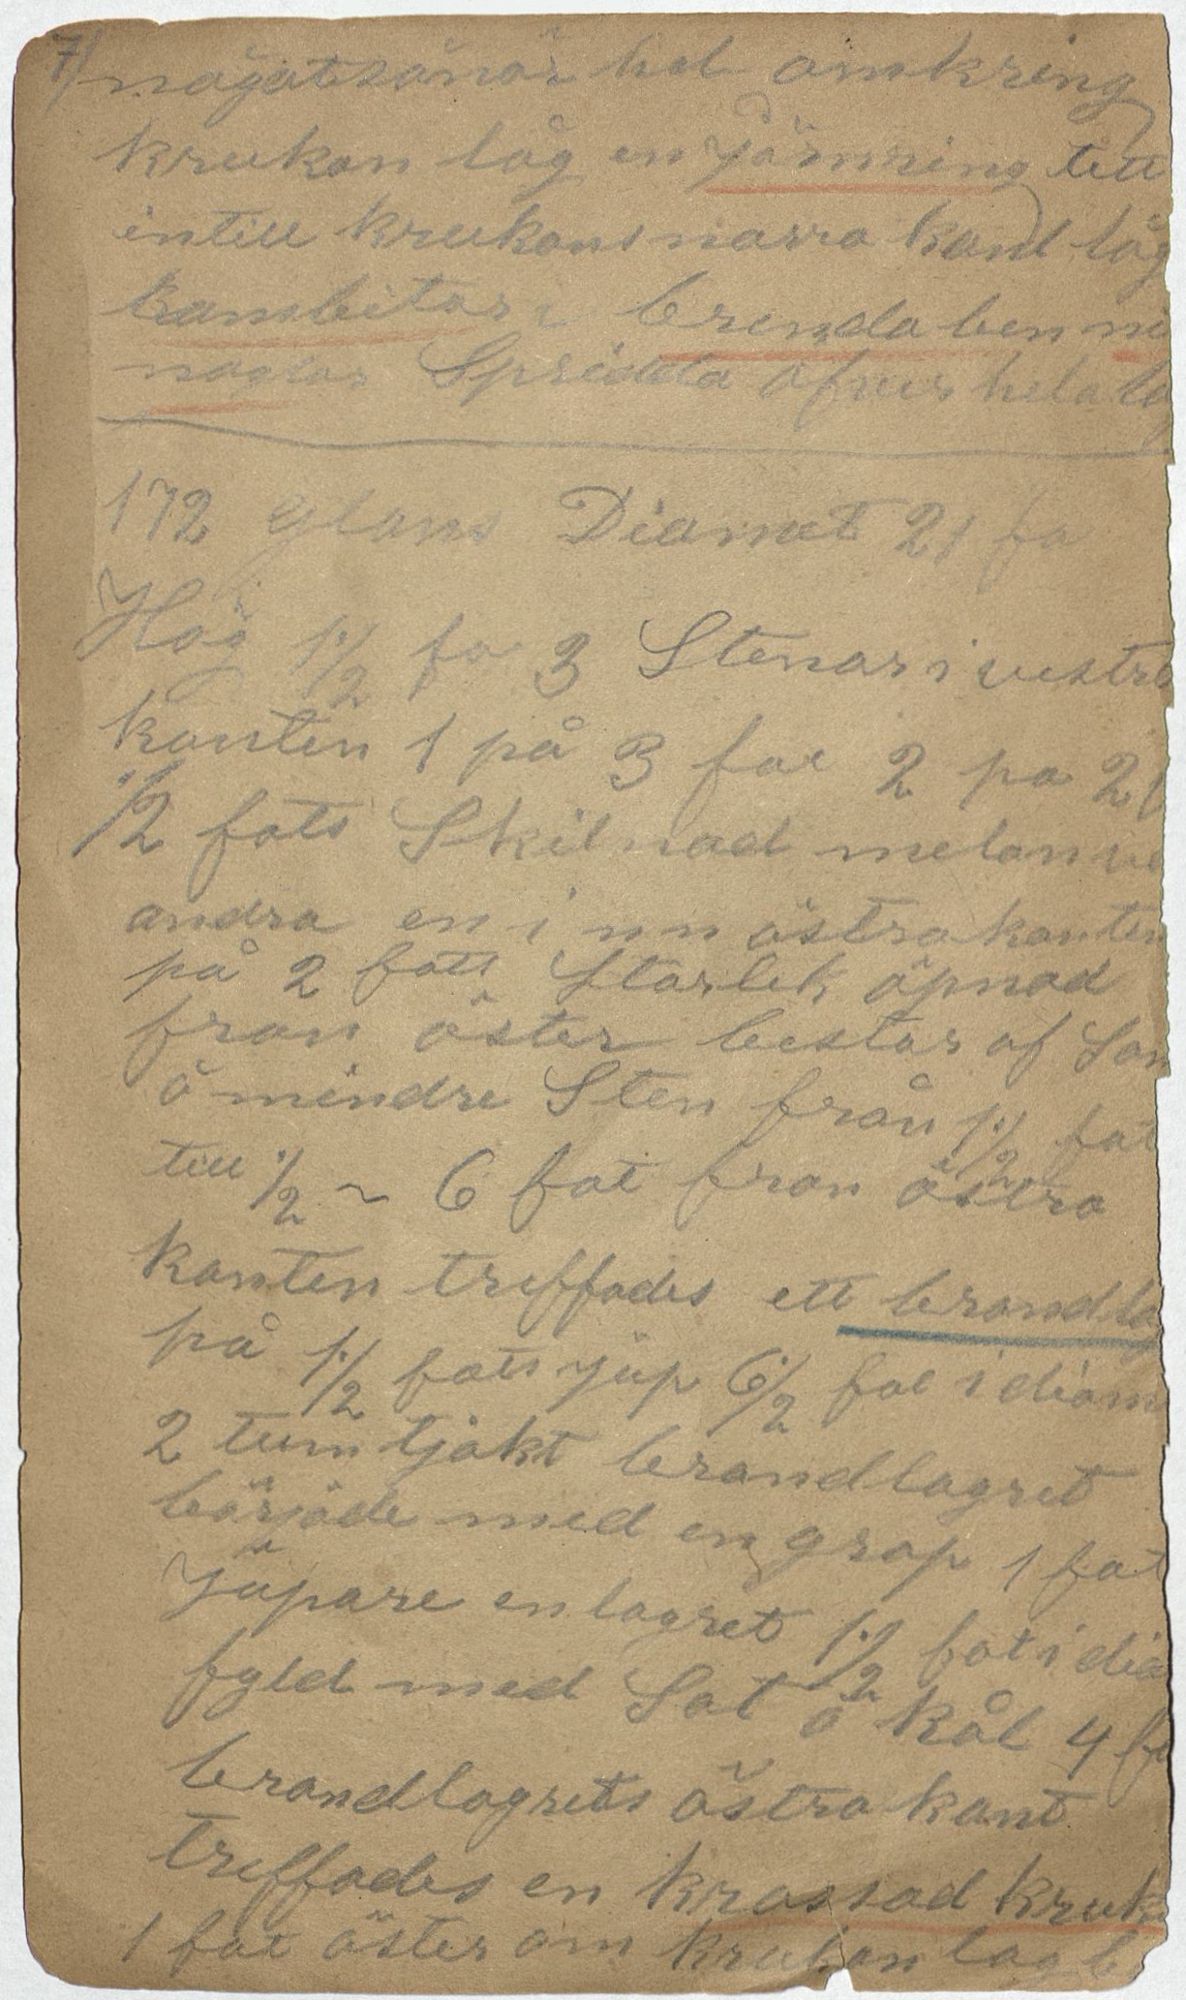 7)
någotsånär hel omkring
krukan låg en järnring tett
intill krukans norra kant låg
kambitar i brenda ben
naglar Spridda öfver hela
172 glans Diamet 21 fo
Hög 1 1/2 fo 3 Stenar i vestra
kanten 1 på 3 fot 2 po 2
1/2 fots Skilnad melan
andra en i nn östra kanten
på 2 fots Storlek öpnad
fron öster bestar af
å mindre Sten från 1 1/2 fot
till 1/2 ~ 6 fot fron östra
kanten treffades ett brandlag
på 1 1/2 fots jup 6 1/2 fot i diam
2 tum tjokt brandlagret
börjåde med en grop 1 fot
jupare en lagret 1 1/2 fot i dia
fyld med Sot å kål 4 fo
brandlagrets östra kant
treffades en krossad kruk
1 fot öster om krukan lag b